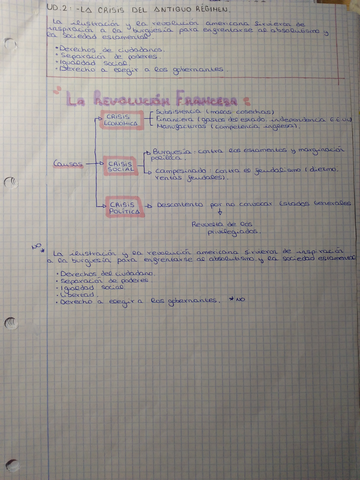 UD.2: -LA CRISIS DEL ANTIGUO RÉGIMEN.
La ilustración y la revolución americana sirvieron de
inspiración a la burguesía para enfrentarse al absolutismo y
la sociedad estamental
• Derechos de ciudadanos.
• Separación de poderes
• Igualdad social
• Derecho a elegir a los gobernantes
LA REVOLUCIÓN FRANCESA:
Causas
CRISIS ECONÓMICA
Subsistencia (malas cosechas)
Financiera (gastos del estado, independencia EEUU)
Manufacturas (competencia inglesa)
CRISIS SOCIAL
Burguesía: contra los estamentos y marginación
política.
Campesinado: contra el feudalismo (diezmo,
rentas feudales)
CRISIS POLÍTICA
Descontento por no convocar Estados Generales
Revuelta de los
privilegiados
NO
* La ilustración y la revolución americana sirvieron de inspiración
a la burguesía para enfrentarse al absolutismo y la sociedad estamental
• Derechos del ciudadano.
• Separación de poderes
• Igualdad social
• Libertad.
• Derecho a elegir a los gobernantes. * NO